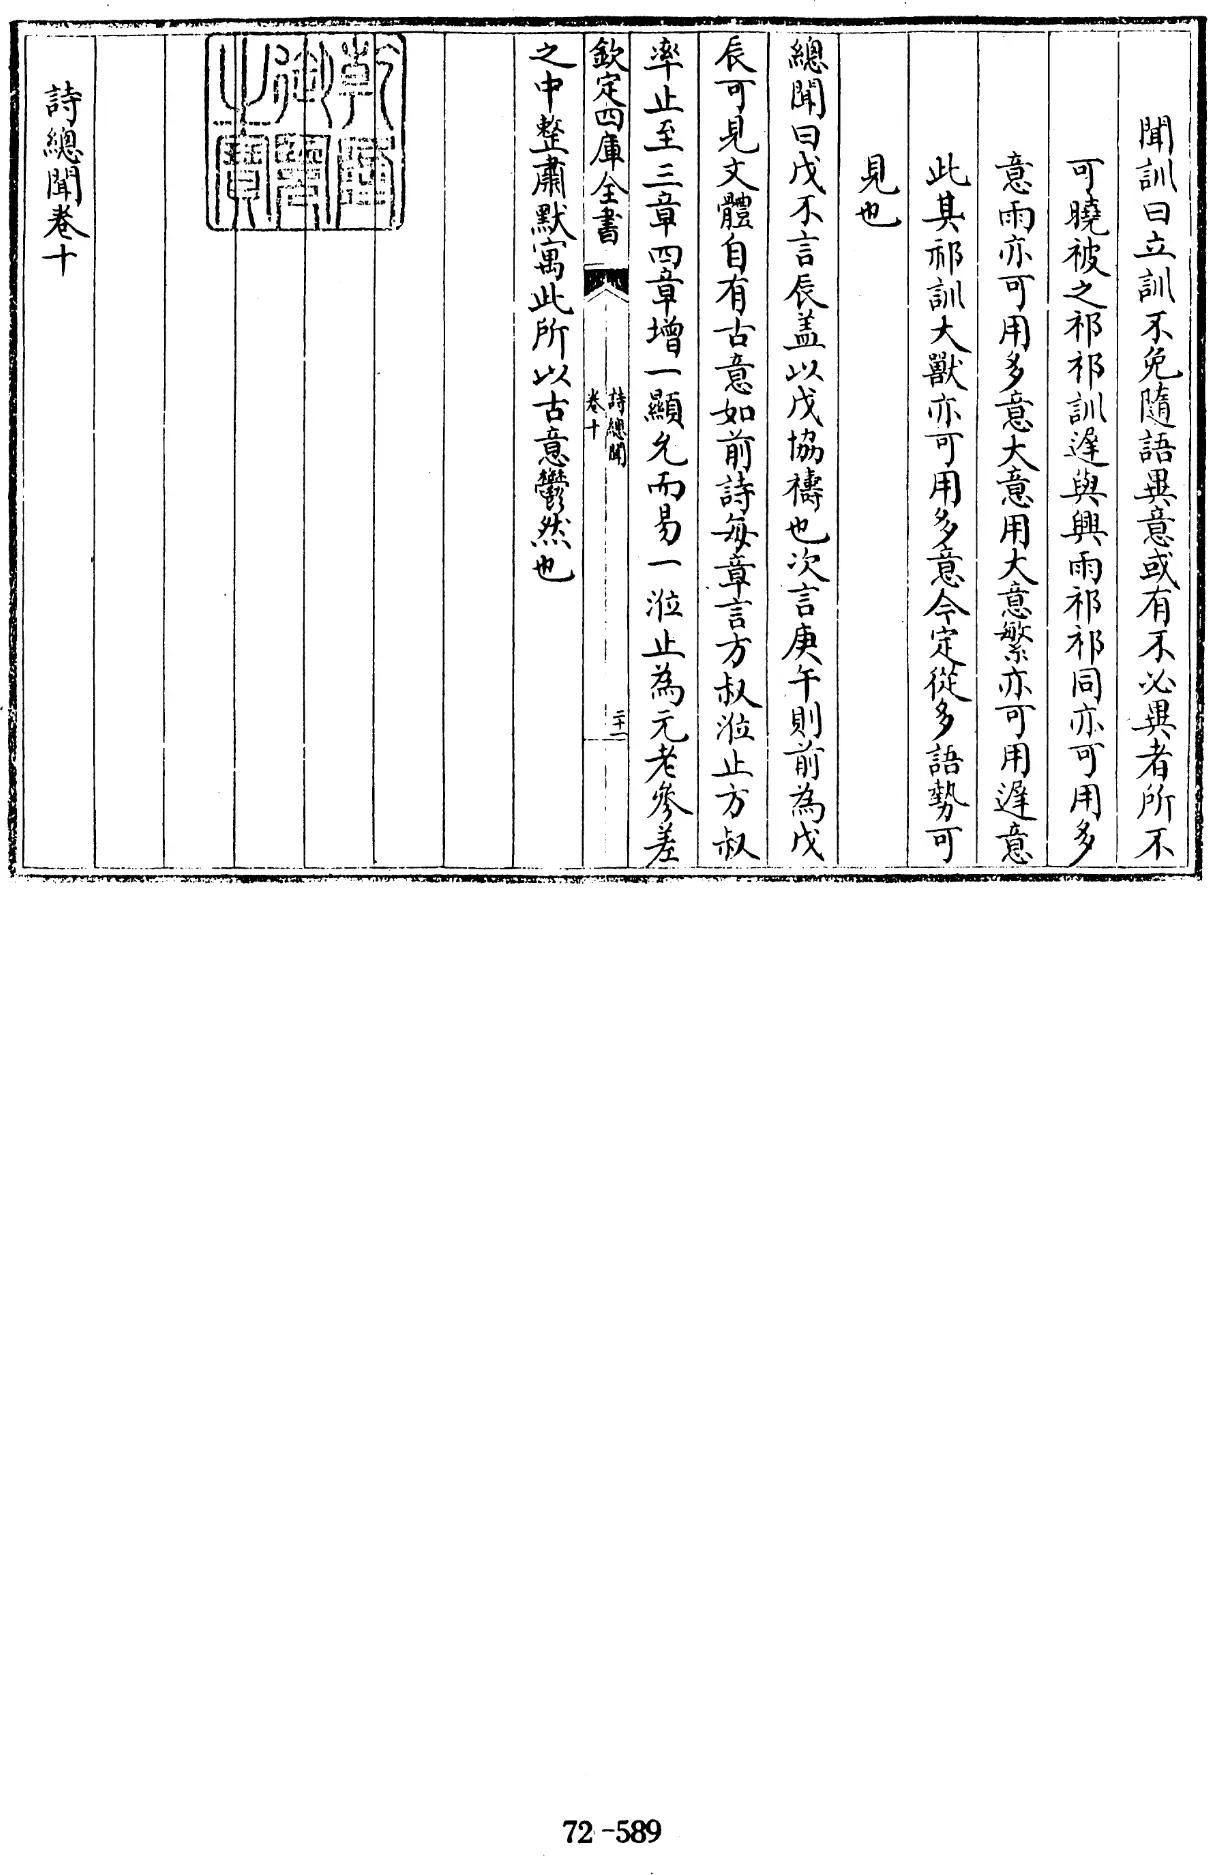 聞訓曰立訓不免隨語異意或有不必異者所不
可曉被之祁祁訓遲與興雨祁祁同亦可用多
意雨亦可用多意大意用大意繁亦可用遲意
此其祁訓大獸亦可用多意今定從多語勢可
見也
總聞曰戊不言辰盖以戊協禱也次言庚午則前為戊
辰可見文體自有古意如前詩每章言方叔涖止方叔
率止至三章四章增一顯允而易一涖止為元老參差
欽定四庫全書
詩總聞
卷十
二十一
之中整肅默寓此所以古意鬱然也
乾隆御覽之寶
詩總聞卷十
72-589